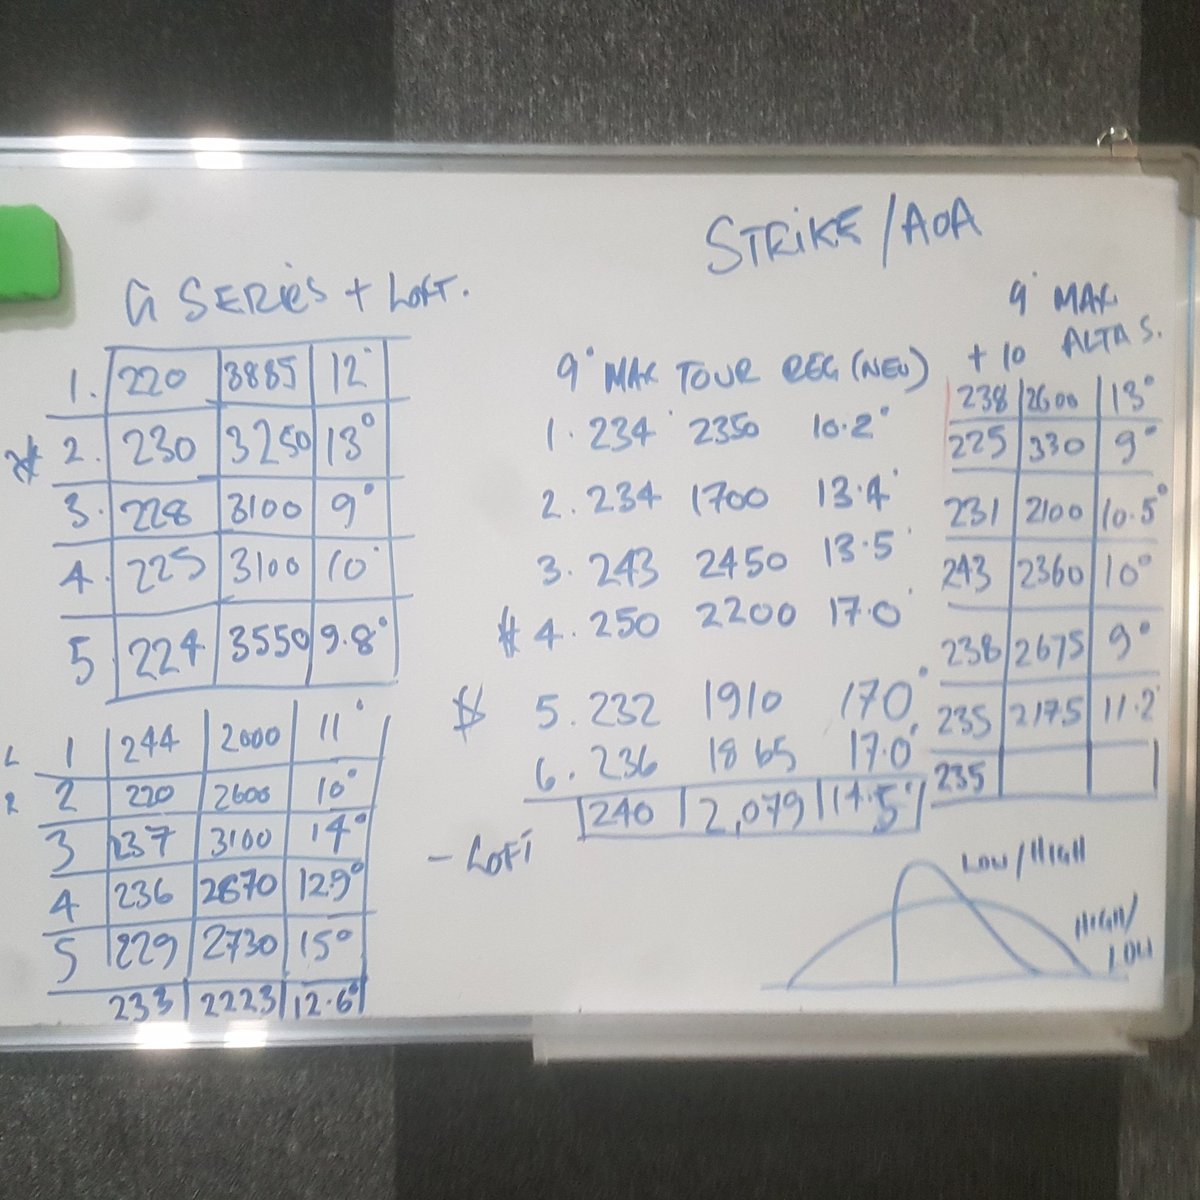 STRIKE/AOA
G SERIES + LOFT.
1. 220 3885 12°
2. 230 3250 13°
3. 228 3100 9°
4. 225 3100 10°
5 224 3550 9.8°
1 244 2000 11°
2 220 2600 10°
3 237 3100 14°
4 236 2670 12.9°
5 229 2730 15°
233 2223 12.6°
9° MAX TOUR REG (NEU)
1. 234 2350 10.2°
2. 234 1700 13.4°
3. 243 2450 13.5°
4. 250 2200 17.0°
5. 232 1910 170°
6. 236 1865 17.0°
240 2,079 14.5°
- LOFT
9° MAX
+ 10 ALTA S.
238 2600 13°
225 330 9°
231 2100 10.5°
243 2360 10°
238 2675 9°
235 2175 11.2°
235
LOW/HIGH
HIGH/
LOW